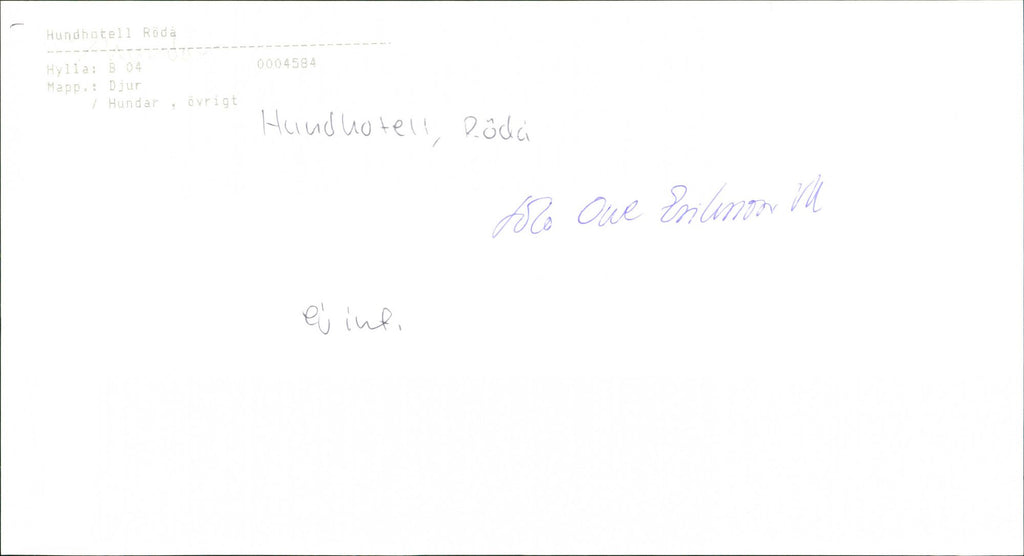 Hundhotell Röda
Hylla: B 04 0004584
Mapp.: Djur
/ Hundar , övrigt
Hundhotell, Röda
foto Owe Eriksson
ej int.